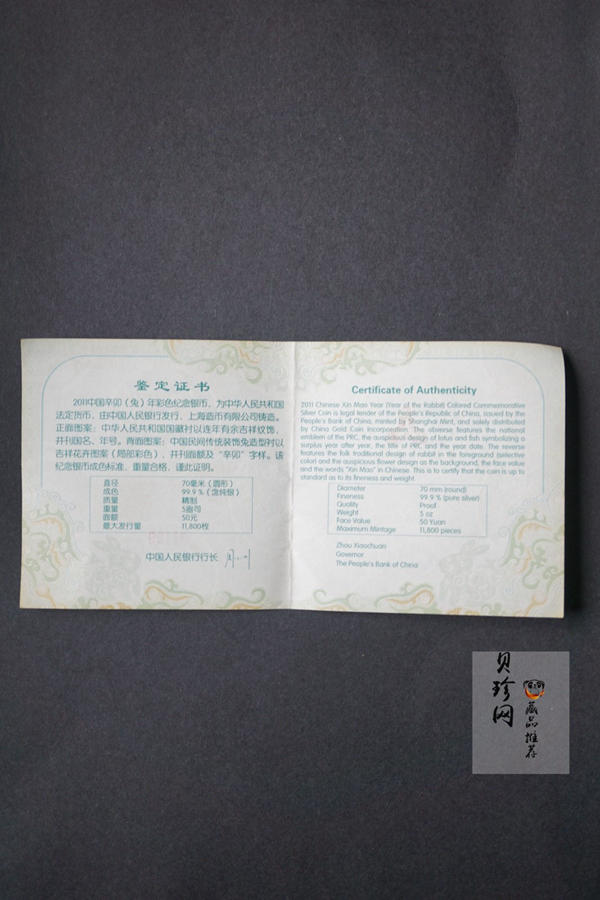 鉴定证书
2011中国辛卯（兔）年彩色纪念银币，为中华人民共和国
法定货币，由中国人民银行发行，上海造币有限公司铸造。
正面图案：中华人民共和国国徽衬以连年有余吉祥纹饰，
并刊国名、年号。背面图案：中国民间传统装饰兔造型衬以
吉祥花卉图案（局部彩色），并刊面额及“辛卯”字样。该
纪念银币成色标准，重量合格，谨此证明。
直径 70毫米（圆形）
成色 99.9％（含纯银）
质量 精制
重量 5盎司
面额 50元
最大发行量 11,800枚
中国人民银行行长
Certificate of Authenticity
2011 Chinese Xin Mao Year (Year of the Rabbit) Colored Commemorative
Silver Coin is legal tender of the People's Republic of China, issued by the
People's Bank of China, minted by Shanghai Mint, and solely distributed
by China Gold Coin Incorporation. The obverse features the national
emblem of the PRC, the auspicious design of lotus and fish symbolizing a
surplus year after year, the title of PRC, and the year date. The reverse
features the folk traditional design of rabbit in the foreground (selective
color) and the auspicious flower design as the background, the face value
and the words "Xin Mao" in Chinese. This is to certify that the coin is up to
standard as to its fineness and weight.
Diameter 70 mm (round)
Fineness 99.9 % (pure silver)
Quality Proof
Weight 5 oz
Face Value 50 Yuan
Maximum Mintage 11,800 pieces
Zhou Xiaochuan
Governor
The People's Bank of China
贝珍网
藏品推荐